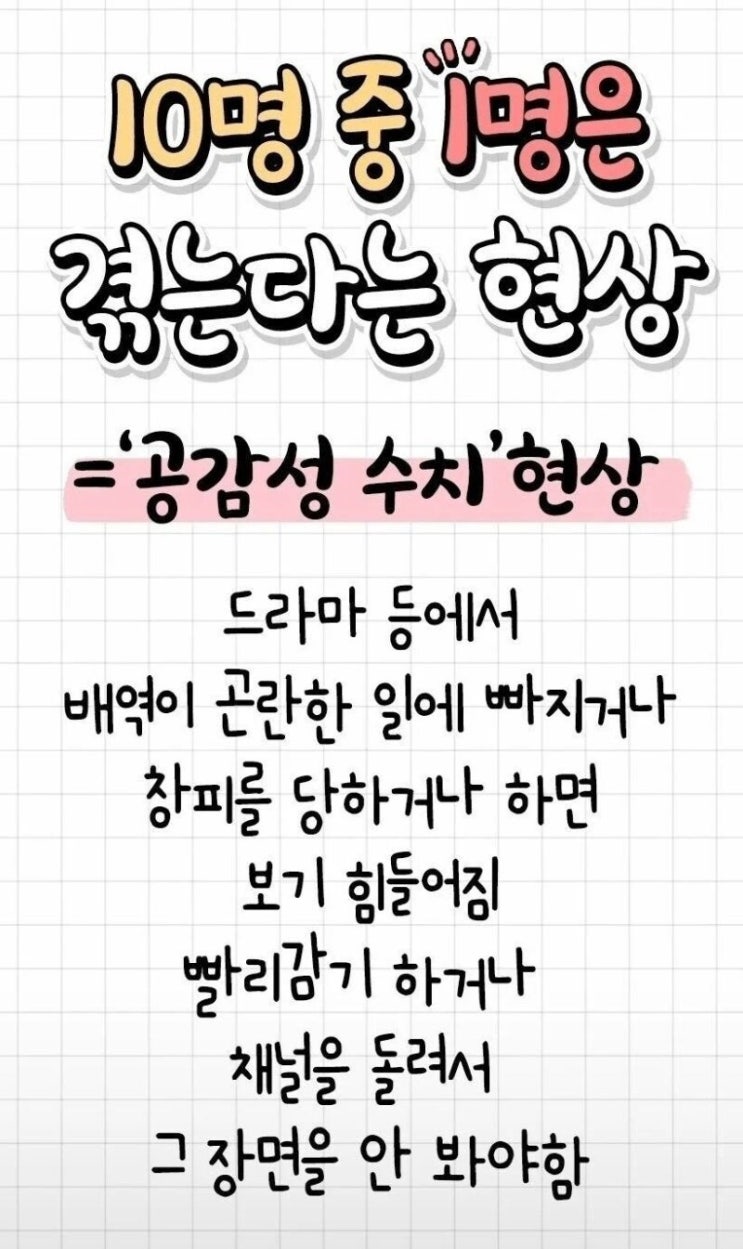 10명 중 1명은
겪는다는 현상
='공감성 수치'현상
드라마 등에서
배역이 곤란한 일에 빠지거나
창피를 당하거나 하면
보기 힘들어짐
빨리감기 하거나
채널을 돌려서
그 장면을 안 봐야함